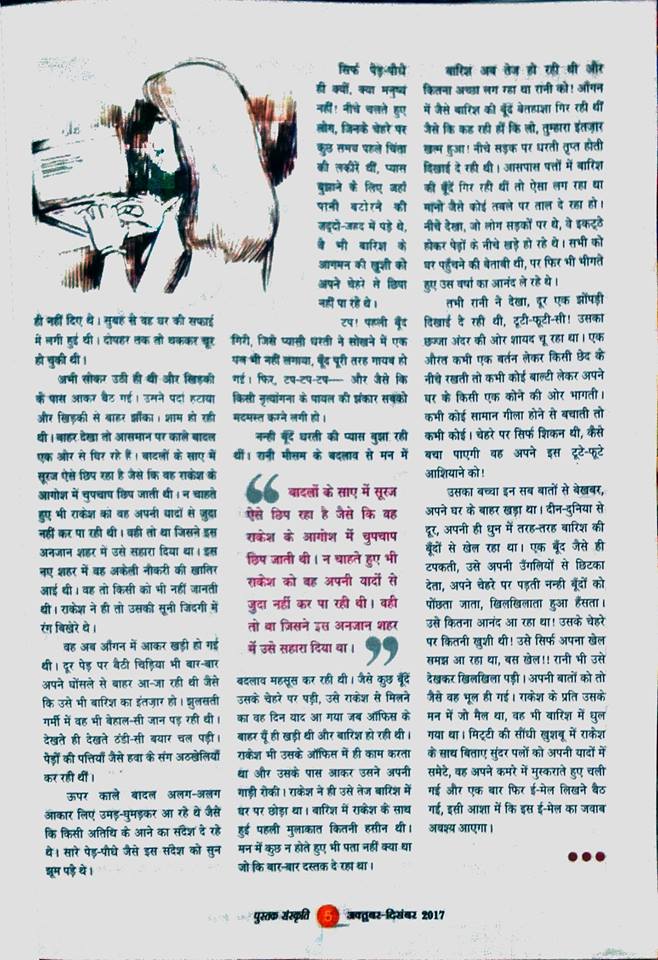 ही नहीं दिए थे। सुबह से वह घर की सफाई
में लगी हुई थी। दोपहर तक तो थककर चूर
हो चुकी थी।
अभी सोकर उठी ही थी और खिड़की
के पास आकर बैठ गई। उसने पर्दा हटाया
और खिड़की से बाहर झाँका। शाम हो रही
थी। बाहर देखा तो आसमान पर काले बादल
एक ओर से घिर रहे हैं। बादलों के साए में
सूरज ऐसे छिप रहा है जैसे कि वह राकेश के
आगोश में चुपचाप छिप जाती थी। न चाहते
हुए भी राकेश को वह अपनी यादों से जुदा
नहीं कर पा रही थी। वही तो था जिसने इस
अनजान शहर में उसे सहारा दिया था। इस
नए शहर में वह अकेली नौकरी की खातिर
आई थी। वह तो किसी को भी नहीं जानती
थी। राकेश ने ही तो उसकी सूनी जिंदगी में
रंग बिखेरे थे।
वह अब आँगन में आकर खड़ी हो गई
थी। दूर पेड़ पर बैठी चिड़िया भी बार-बार
अपने घोंसले से बाहर आ-जा रही थी जैसे
कि उसे भी बारिश का इंतज़ार हो। झुलसती
गर्मी में वह भी बेहाल-सी जान पड़ रही थी।
देखते ही देखते ठंडी-सी बयार चल पड़ी।
पेड़ों की पत्तियाँ जैसे हवा के संग अठखेलियाँ
कर रही थीं।
ऊपर काले बादल अलग-अलग
आकार लिए उमड़-घुमड़कर आ रहे थे जैसे
कि किसी अतिथि के आने का संदेश दे रहे
थे। सारे पेड़-पौधे जैसे इस संदेश को सुन
झूम पड़े थे।
सिर्फ पेड़-पौधे
ही क्यों, क्या मनुष्य
नहीं! नीचे चलते हुए
लोग, जिनके चेहरे पर
कुछ समय पहले चिंता
की लकीरें थीं, प्यास
बुझाने के लिए जहाँ
पानी बटोरने की
जद्दो-जहद में पड़े थे,
वे भी बारिश के
आगमन की खुशी को
अपने चेहरे से छिपा
नहीं पा रहे थे।
टप! पहली बूँद
गिरी, जिसे प्यासी धरती ने सोखने में एक
पल भी नहीं लगाया, बूँद पूरी तरह गायब हो
गई। फिर, टप-टप-टप— और जैसे कि
किसी नृत्यांगना के पायल की झंकार सबको
मदमस्त करने लगी हो।
नन्ही बूँदें धरती की प्यास बुझा रही
थीं। रानी मौसम के बदलाव से मन में
“ बादलों के साए में सूरज
ऐसे छिप रहा है जैसे कि वह
राकेश के आगोश में चुपचाप
छिप जाती थी। न चाहते हुए भी
राकेश को वह अपनी यादों से
जुदा नहीं कर पा रही थी। वही
तो था जिसने इस अनजान शहर
में उसे सहारा दिया था। ”
बदलाव महसूस कर रही थी। जैसे कुछ बूँदें
उसके चेहरे पर पड़ी, उसे राकेश से मिलने
का वह दिन याद आ गया जब ऑफिस के
बाहर यूँ ही खड़ी थी और बारिश हो रही थी।
राकेश भी उसके ऑफिस में ही काम करता
था और उसके पास आकर उसने अपनी
गाड़ी रोकी। राकेश ने ही उसे तेज बारिश में
घर पर छोड़ा था। बारिश में राकेश के साथ
हुई पहली मुलाकात कितनी हसीन थी।
मन में कुछ न होते हुए भी पता नहीं क्या था
जो कि बार-बार दस्तक दे रहा था।
बारिश अब तेज हो रही थी और
कितना अच्छा लग रहा था रानी को! आँगन
में जैसे बारिश की बूँदें बेतहाशा गिर रही थीं
जैसे कि कह रही हों कि लो, तुम्हारा इंतज़ार
खत्म हुआ! नीचे सड़क पर धरती तृप्त होती
दिखाई दे रही थी। आसपास पत्तों में बारिश
की बूँदें गिर रही थीं तो ऐसा लग रहा था
मानो जैसे कोई तबले पर ताल दे रहा हो।
नीचे देखा, जो लोग सड़कों पर थे, वे इकट्ठे
होकर पेड़ों के नीचे खड़े हो रहे थे। सभी को
घर पहुँचने की बेताबी थी, पर फिर भी भीगते
हुए उस वर्षा का आनंद ले रहे थे।
तभी रानी ने देखा, दूर एक झोंपड़ी
दिखाई दे रही थी, टूटी-फूटी-सी! उसका
छज्जा अंदर की ओर शायद चू रहा था। एक
औरत कभी एक बर्तन लेकर किसी छेद के
नीचे रखती तो कभी कोई बाल्टी लेकर अपने
घर के किसी एक कोने की ओर भागती।
कभी कोई सामान गीला होने से बचाती तो
कभी कोई। चेहरे पर सिर्फ शिकन थी, कैसे
बचा पाएगी वह अपने इस टूटे-फूटे
आशियाने को!
उसका बच्चा इन सब बातों से बेखबर,
अपने घर के बाहर खड़ा था। दीन-दुनिया से
दूर, अपनी ही धुन में तरह-तरह बारिश की
बूँदों से खेल रहा था। एक बूँद जैसे ही
टपकती, उसे अपनी उँगलियों से छिटका
देता, अपने चेहरे पर पड़ती नन्ही बूँदों को
पोंछता जाता, खिलखिलाता हुआ हँसता।
उसे कितना आनंद आ रहा था! उसके चेहरे
पर कितनी खुशी थी! उसे सिर्फ अपना खेल
समझ आ रहा था, बस खेल!! रानी भी उसे
देखकर खिलखिला पड़ी। अपनी बातों को तो
जैसे वह भूल ही गई। राकेश के प्रति उसके
मन में जो मैल था, वह भी बारिश में धुल
गया था। मिट्टी की सौंधी खुशबू में राकेश
के साथ बिताए सुंदर पलों को अपनी यादों में
समेटे, वह अपने कमरे में मुस्कराते हुए चली
गई और एक बार फिर ई-मेल लिखने बैठ
गई, इसी आशा में कि इस ई-मेल का जवाब
अवश्य आएगा।
पुस्तक संस्कृति 5 अक्तूबर-दिसंबर 2017